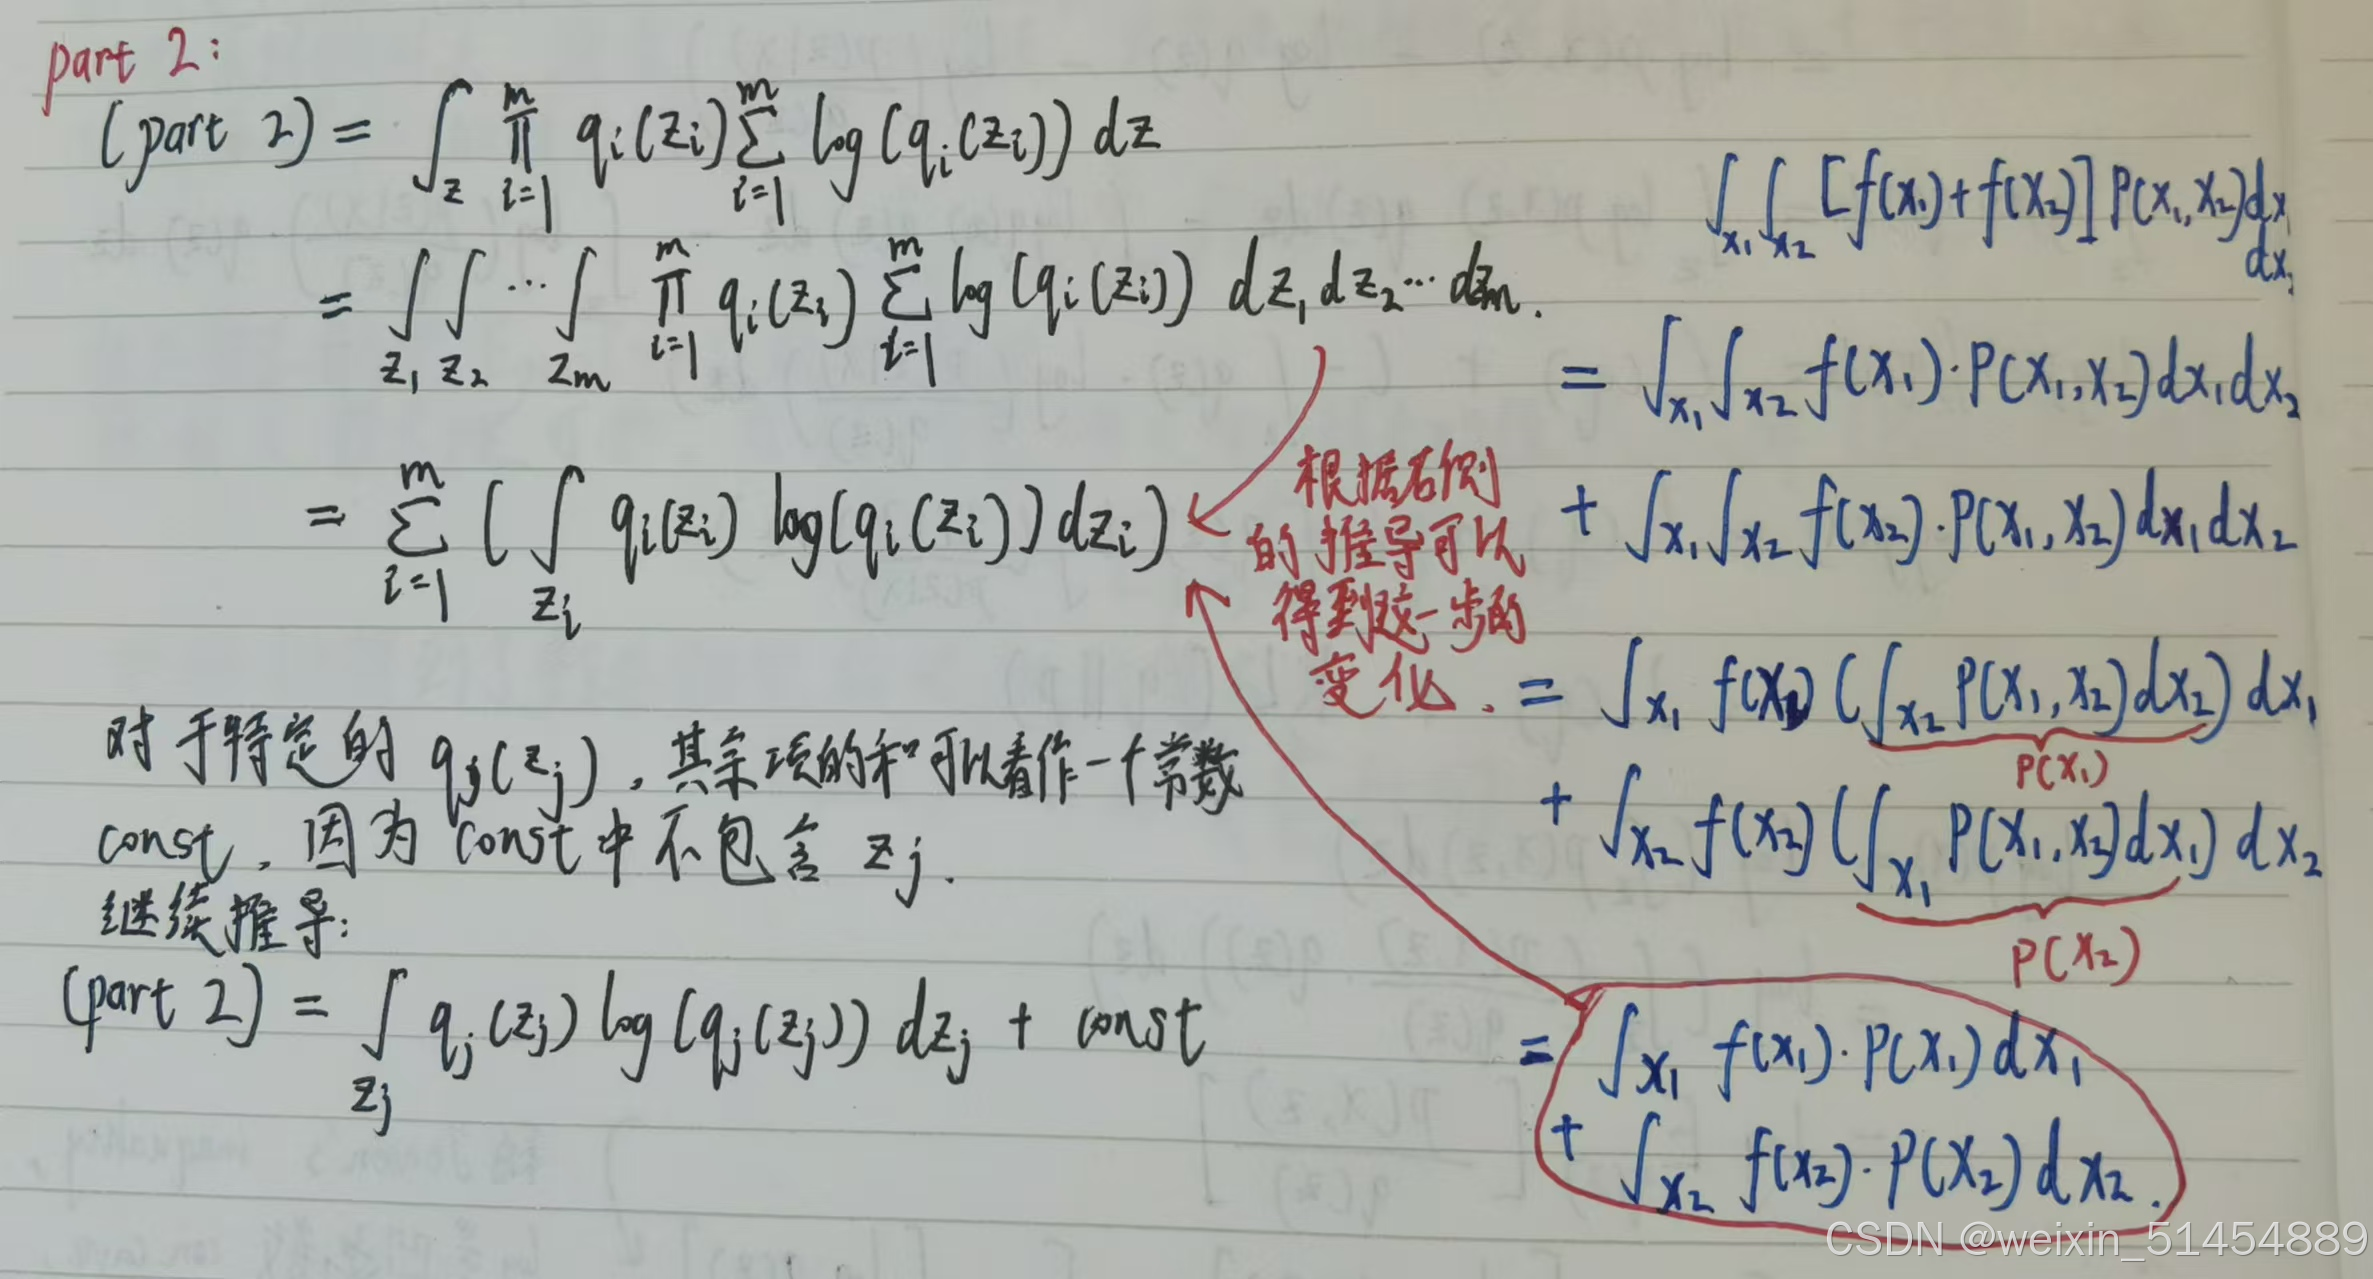 part 2:
(part 2) = ∫_z ∏_{i=1}^m q_i(z_i) ∑_{i=1}^m log(q_i(z_i)) dz
= ∫_{z_1} ∫_{z_2} ⋯ ∫_{z_m} ∏_{i=1}^m q_i(z_i) ∑_{i=1}^m log(q_i(z_i)) dz_1 dz_2 ⋯ dz_m.
= ∑_{i=1}^m (∫_{z_i} q_i(z_i) log(q_i(z_i)) dz_i)
根据右侧
的推导可以
得到这一步的
变化.
对于特定的 q_j(z_j), 其余项的和可以看作一个常数
const, 因为 const 中不包含 z_j.
继续推导:
(part 2) = ∫_{z_j} q_j(z_j) log(q_j(z_j)) dz_j + const
∫_{x_1} ∫_{x_2} [f(x_1)+f(x_2)] P(x_1,x_2) dx_1
dx_2
= ∫_{x_1} ∫_{x_2} f(x_1)·P(x_1,x_2) dx_1 dx_2
+ ∫_{x_1} ∫_{x_2} f(x_2)·P(x_1,x_2) dx_1 dx_2
= ∫_{x_1} f(x_1) (∫_{x_2} P(x_1,x_2) dx_2) dx_1
P(x_1)
+ ∫_{x_2} f(x_2) (∫_{x_1} P(x_1,x_2) dx_1) dx_2
P(x_2)
= ∫_{x_1} f(x_1)·P(x_1) dx_1
+ ∫_{x_2} f(x_2)·P(x_2) dx_2.
CSDN @weixin_51454889